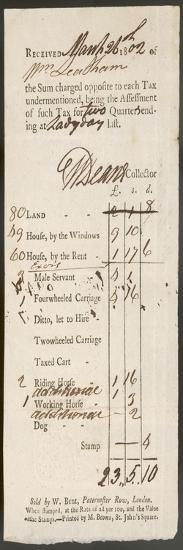 RECEIVED March 26th 1802 of
Wm Leatham
the Sum charged opposite to each Tax
undermentioned, being the Assessment
of such Tax for two Quarters end-
ing at Ladyday last.
Collector
£. s. d.
80 LAND - 2 1 8
49 House, by the Windows 9 10
60 House, by the Rent - 1 17 6
Male Servant -
1 Fourwheeled Carriage 4 16
Ditto, let to Hire -
Twowheeled Carriage
Taxed Cart -
2 Riding Horse - 1 16
additional
1 Working Horse - 1 3
additional 2
Dog -
Stamp - 4
23.5.10
Sold by W. Bent, Paternoster Row, London.
When stamped, at the Rate of 2d per 100, and the Value
of the Stamps.—Printed by M. Brown, St. John's Square.